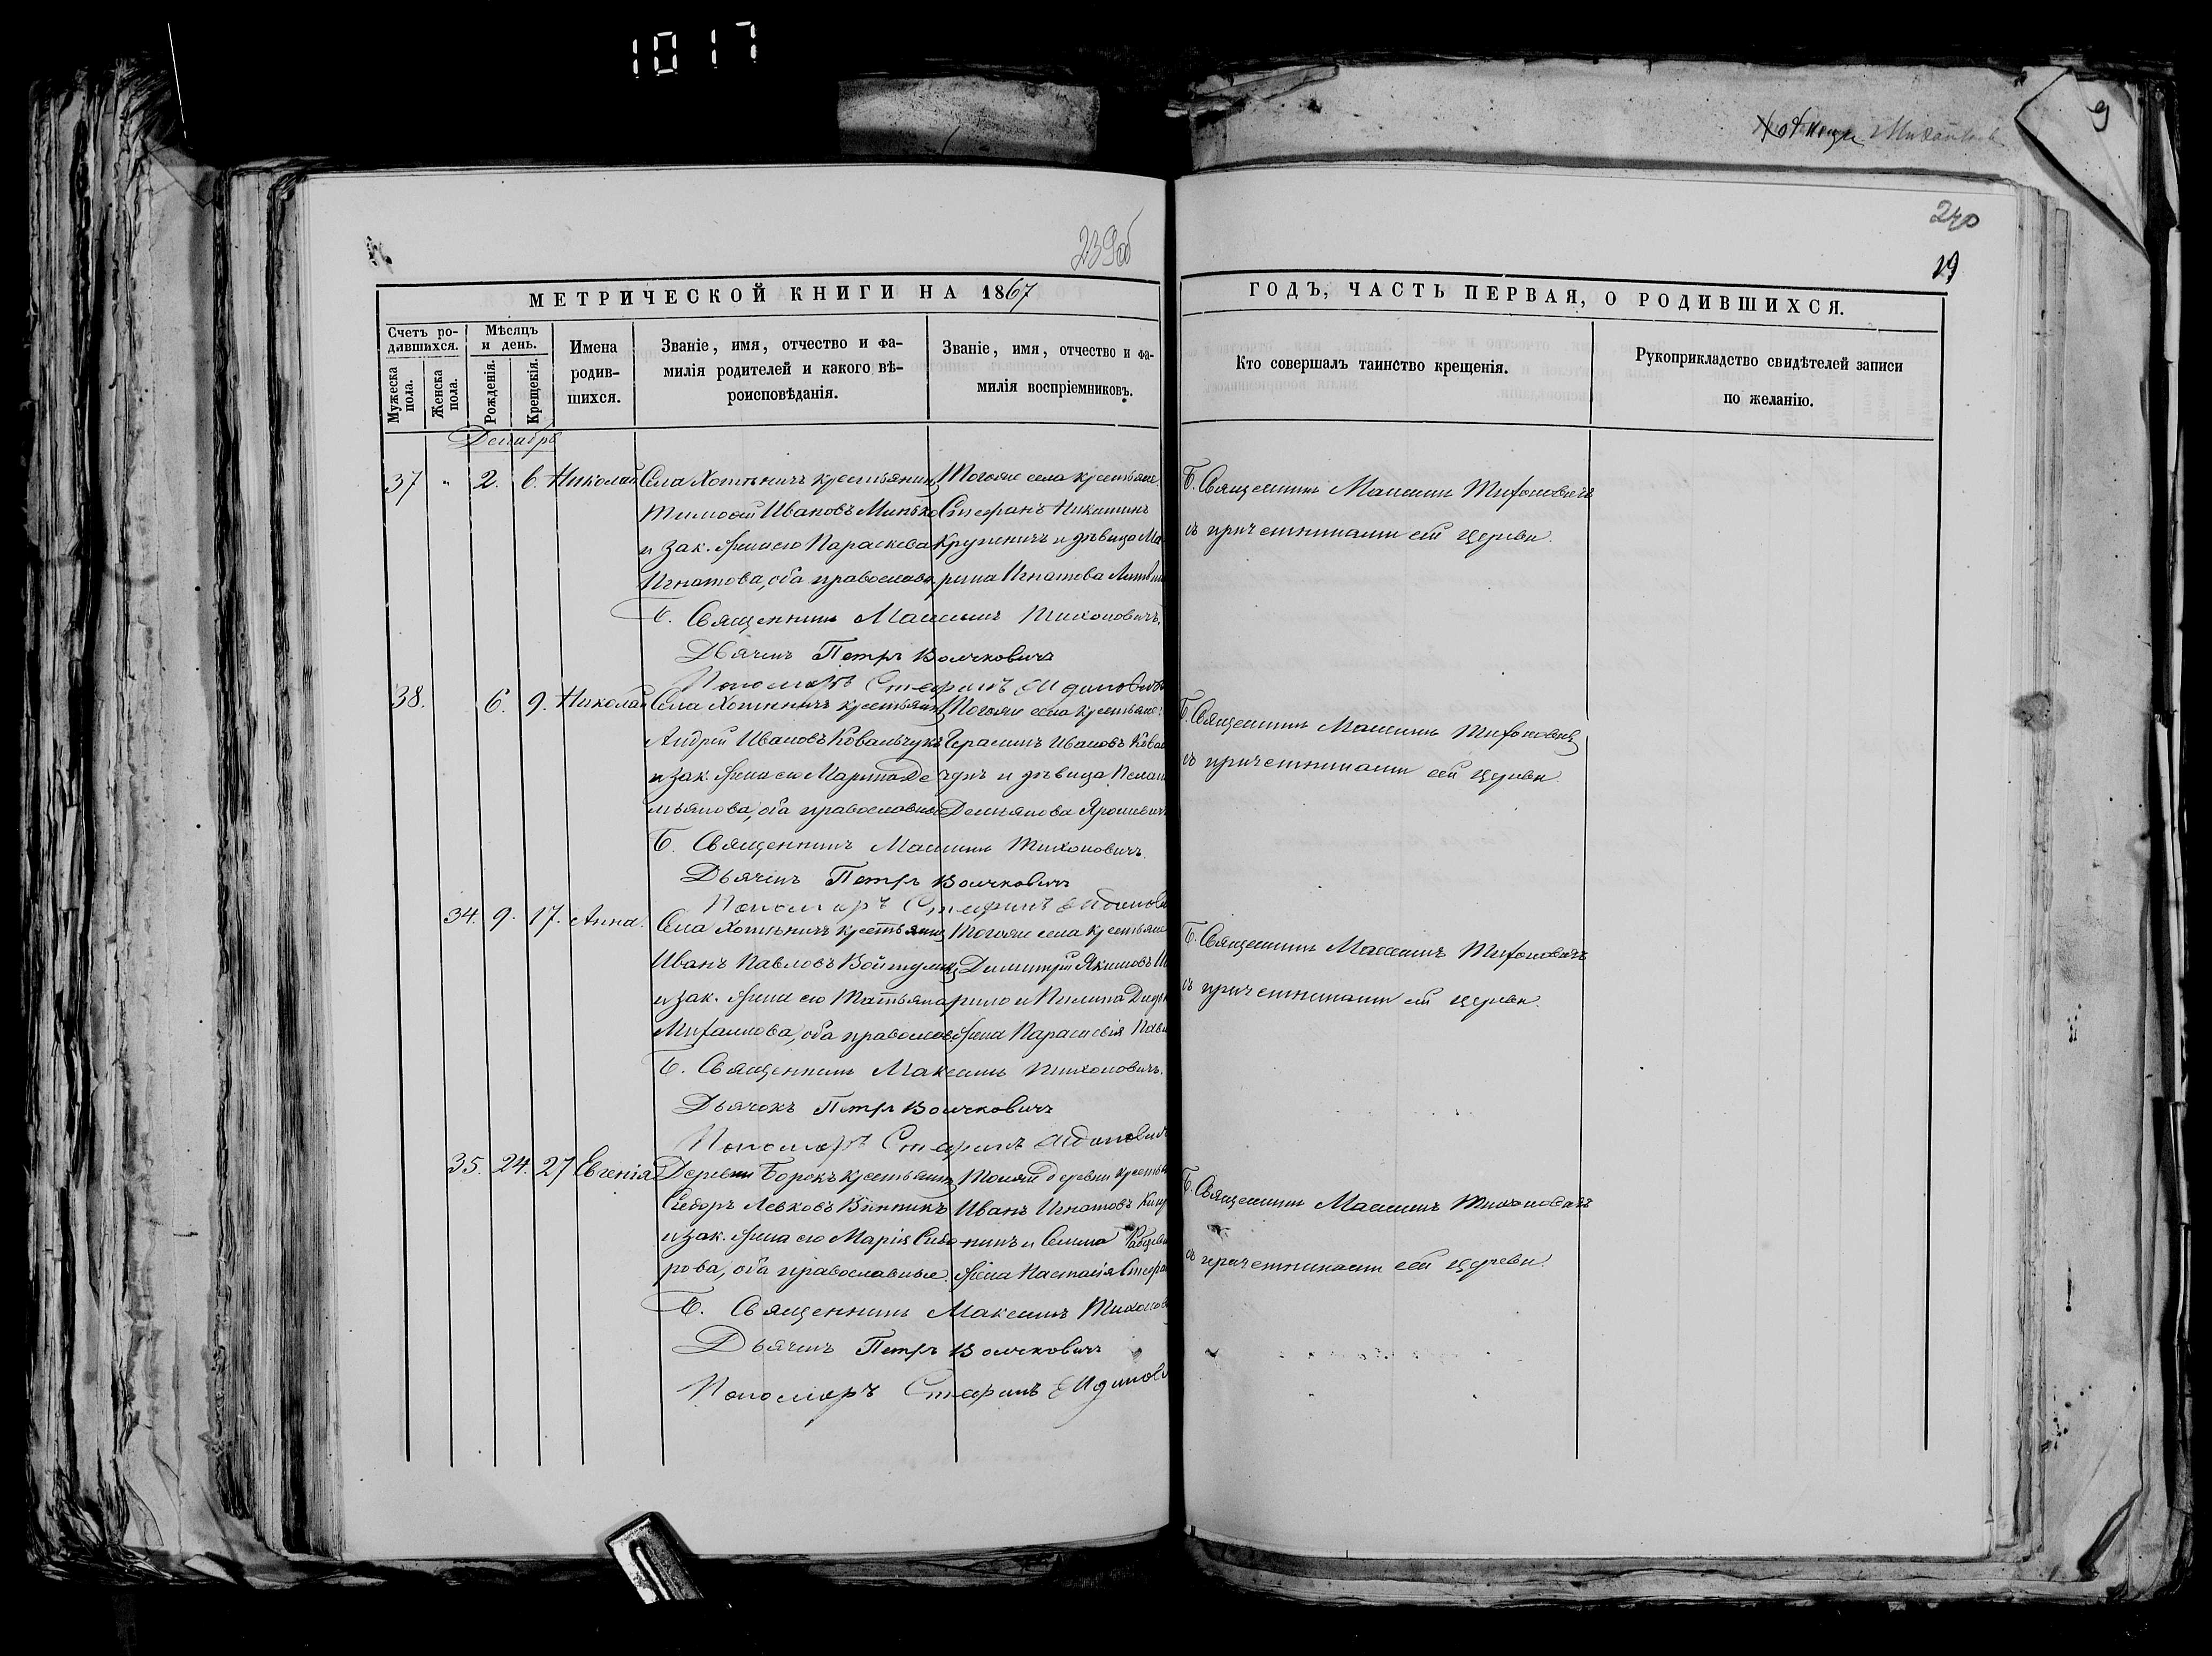 1017
9
239об
240
19
МЕТРИЧЕСКОЙ КНИГИ НА 1867
ГОДЪ, ЧАСТЬ ПЕРВАЯ, О РОДИВШИХСЯ.
Счетъ родившихся.
Мужеска пола.
Женска пола.
Мѣсяцъ и день.
Рожденія.
Крещенія.
Имена родившихся.
Званіе, имя, отчество и фамилія родителей и какого вѣроисповѣданія.
Званіе, имя, отчество и фамилія воспріемниковъ.
Кто совершалъ таинство крещенія.
Рукоприкладство свидѣтелей записи по желанію.
Декабрь
37 " 2. 6. Николай
Села Хотыничъ крестьянинъ
Тимофей Ивановъ Минько
и зак. жена его Параскева
Игнатова, оба православ.
Тогоже села крестьяне
Стефанъ Никитинъ
и дѣвица Ма
рина Игнатова
Б. Священникъ Максимъ Тихоновичъ
съ причетниками сей церкви.
Б. Священникъ Максимъ Тихоновичъ.
Дьячекъ Петръ Волчковичъ
Пономарь Стефанъ
38. 6. 9. Николай
Села Хотыничъ крестьянинъ
Андрей Ивановъ Ковальчукъ
и зак. жена его Марта Де
мьянова, оба православные
Тогоже села крестьяне:
Герасимъ Ивановъ Ковал
чукъ и дѣвица Пелаг
Демьянова Ярошевич
Б. Священникъ Максимъ Тихоновичъ
съ причетниками сей церкви.
Б. Священникъ Максимъ Тихоновичъ.
Дьячекъ Петръ Волчковичъ
Пономарь Стефанъ
34. 9. 17. Анна.
Села Хотыничъ крестьянинъ
Иванъ Павловъ
и зак. жена его Татьяна
Михайлова, оба православ
Тогоже села крестьяне
Димитрій Якимовъ
жена Параскевія Павл
Б. Священникъ Максимъ Тихоновичъ
съ причетниками сей церкви.
Б. Священникъ Максимъ Тихоновичъ.
Дьячокъ Петръ Волчковичъ
Пономарь Стефанъ
35. 24. 27 Евгенія
Деревни Борокъ крестьянинъ
Сидоръ Левковъ Винникъ
и зак. жена его Марія Сидо
рова, оба православные.
Тойже деревни крестья
Иванъ Игнатовъ
жена Настасія Стефа
Б. Священникъ Максимъ Тихоновичъ
съ причетниками сей церкви.
Б. Священникъ Максимъ Тихонов
Дьячекъ Петръ Волчковичъ
Пономарь Стефанъ